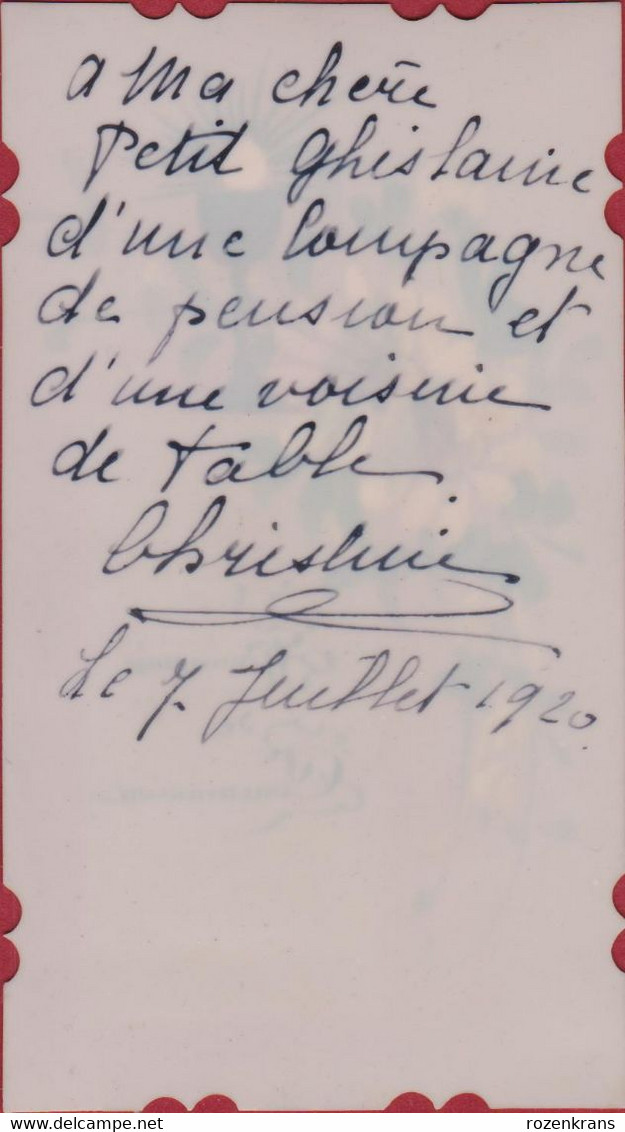 a Ma chère
Petit Ghislaine
d'une Compagne
de pension et
d'une voisine
de table.
Christine
Le 7 Juillet 1920
delcampe.net
rozenkrans